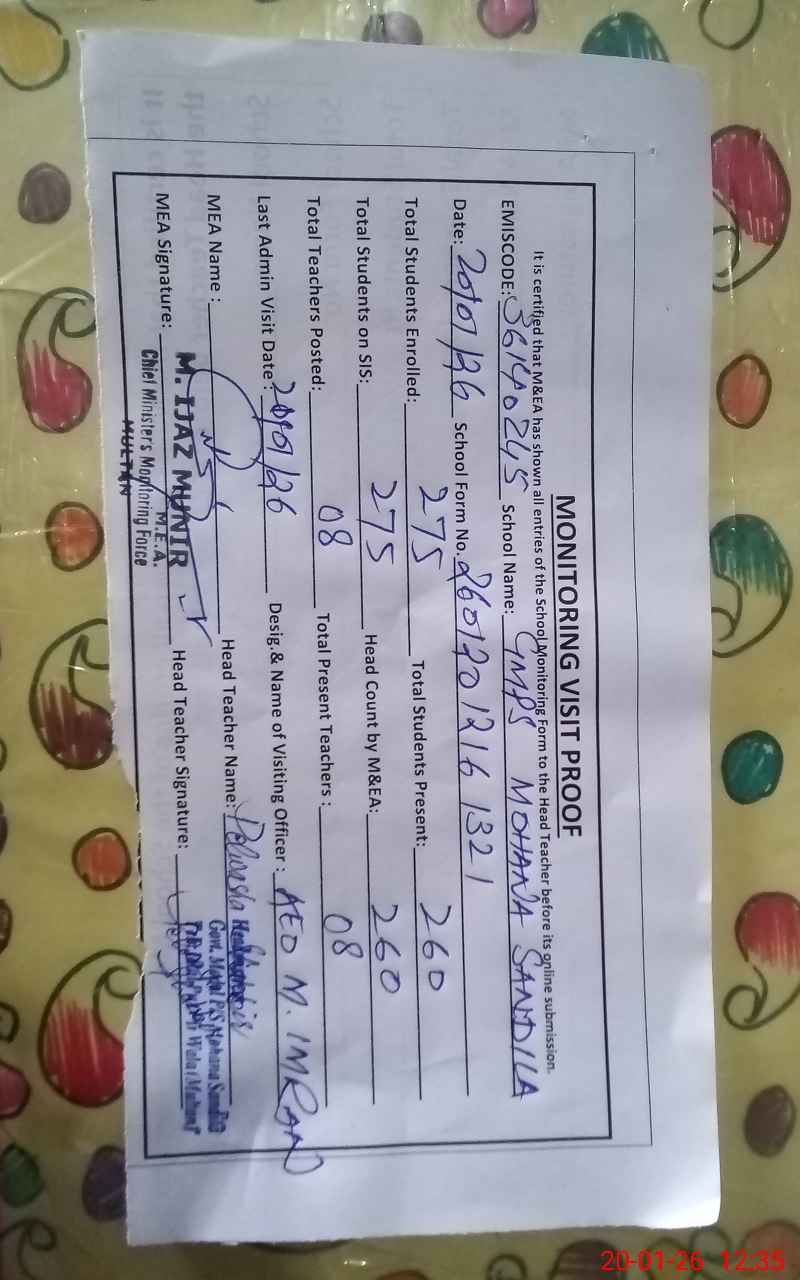 MONITORING VISIT PROOF
It is certified that M&EA has shown all entries of the School Monitoring Form to the Head Teacher before its online submission.
EMISCODE: 36140245 School Name: GMPS MOHANA SANDILA
Date: 20/01/26 School Form No. 2601201216 1321
Total Students Enrolled: 275 Total Students Present: 260
Total Students on SIS: 275 Head Count by M&EA: 260
Total Teachers Posted: 08 Total Present Teachers : 08
Last Admin Visit Date : 20/01/26 Desig.& Name of Visiting Officer : AEO M. IMRAN
MEA Name : Head Teacher Name:
MEA Signature: Head Teacher Signature:
M. IJAZ MUNIR
M.E.A.
Chief Minister's Monitoring Force
MULTAN
Govt. Model P/S Mohana Sandila
20-01-26 12:35